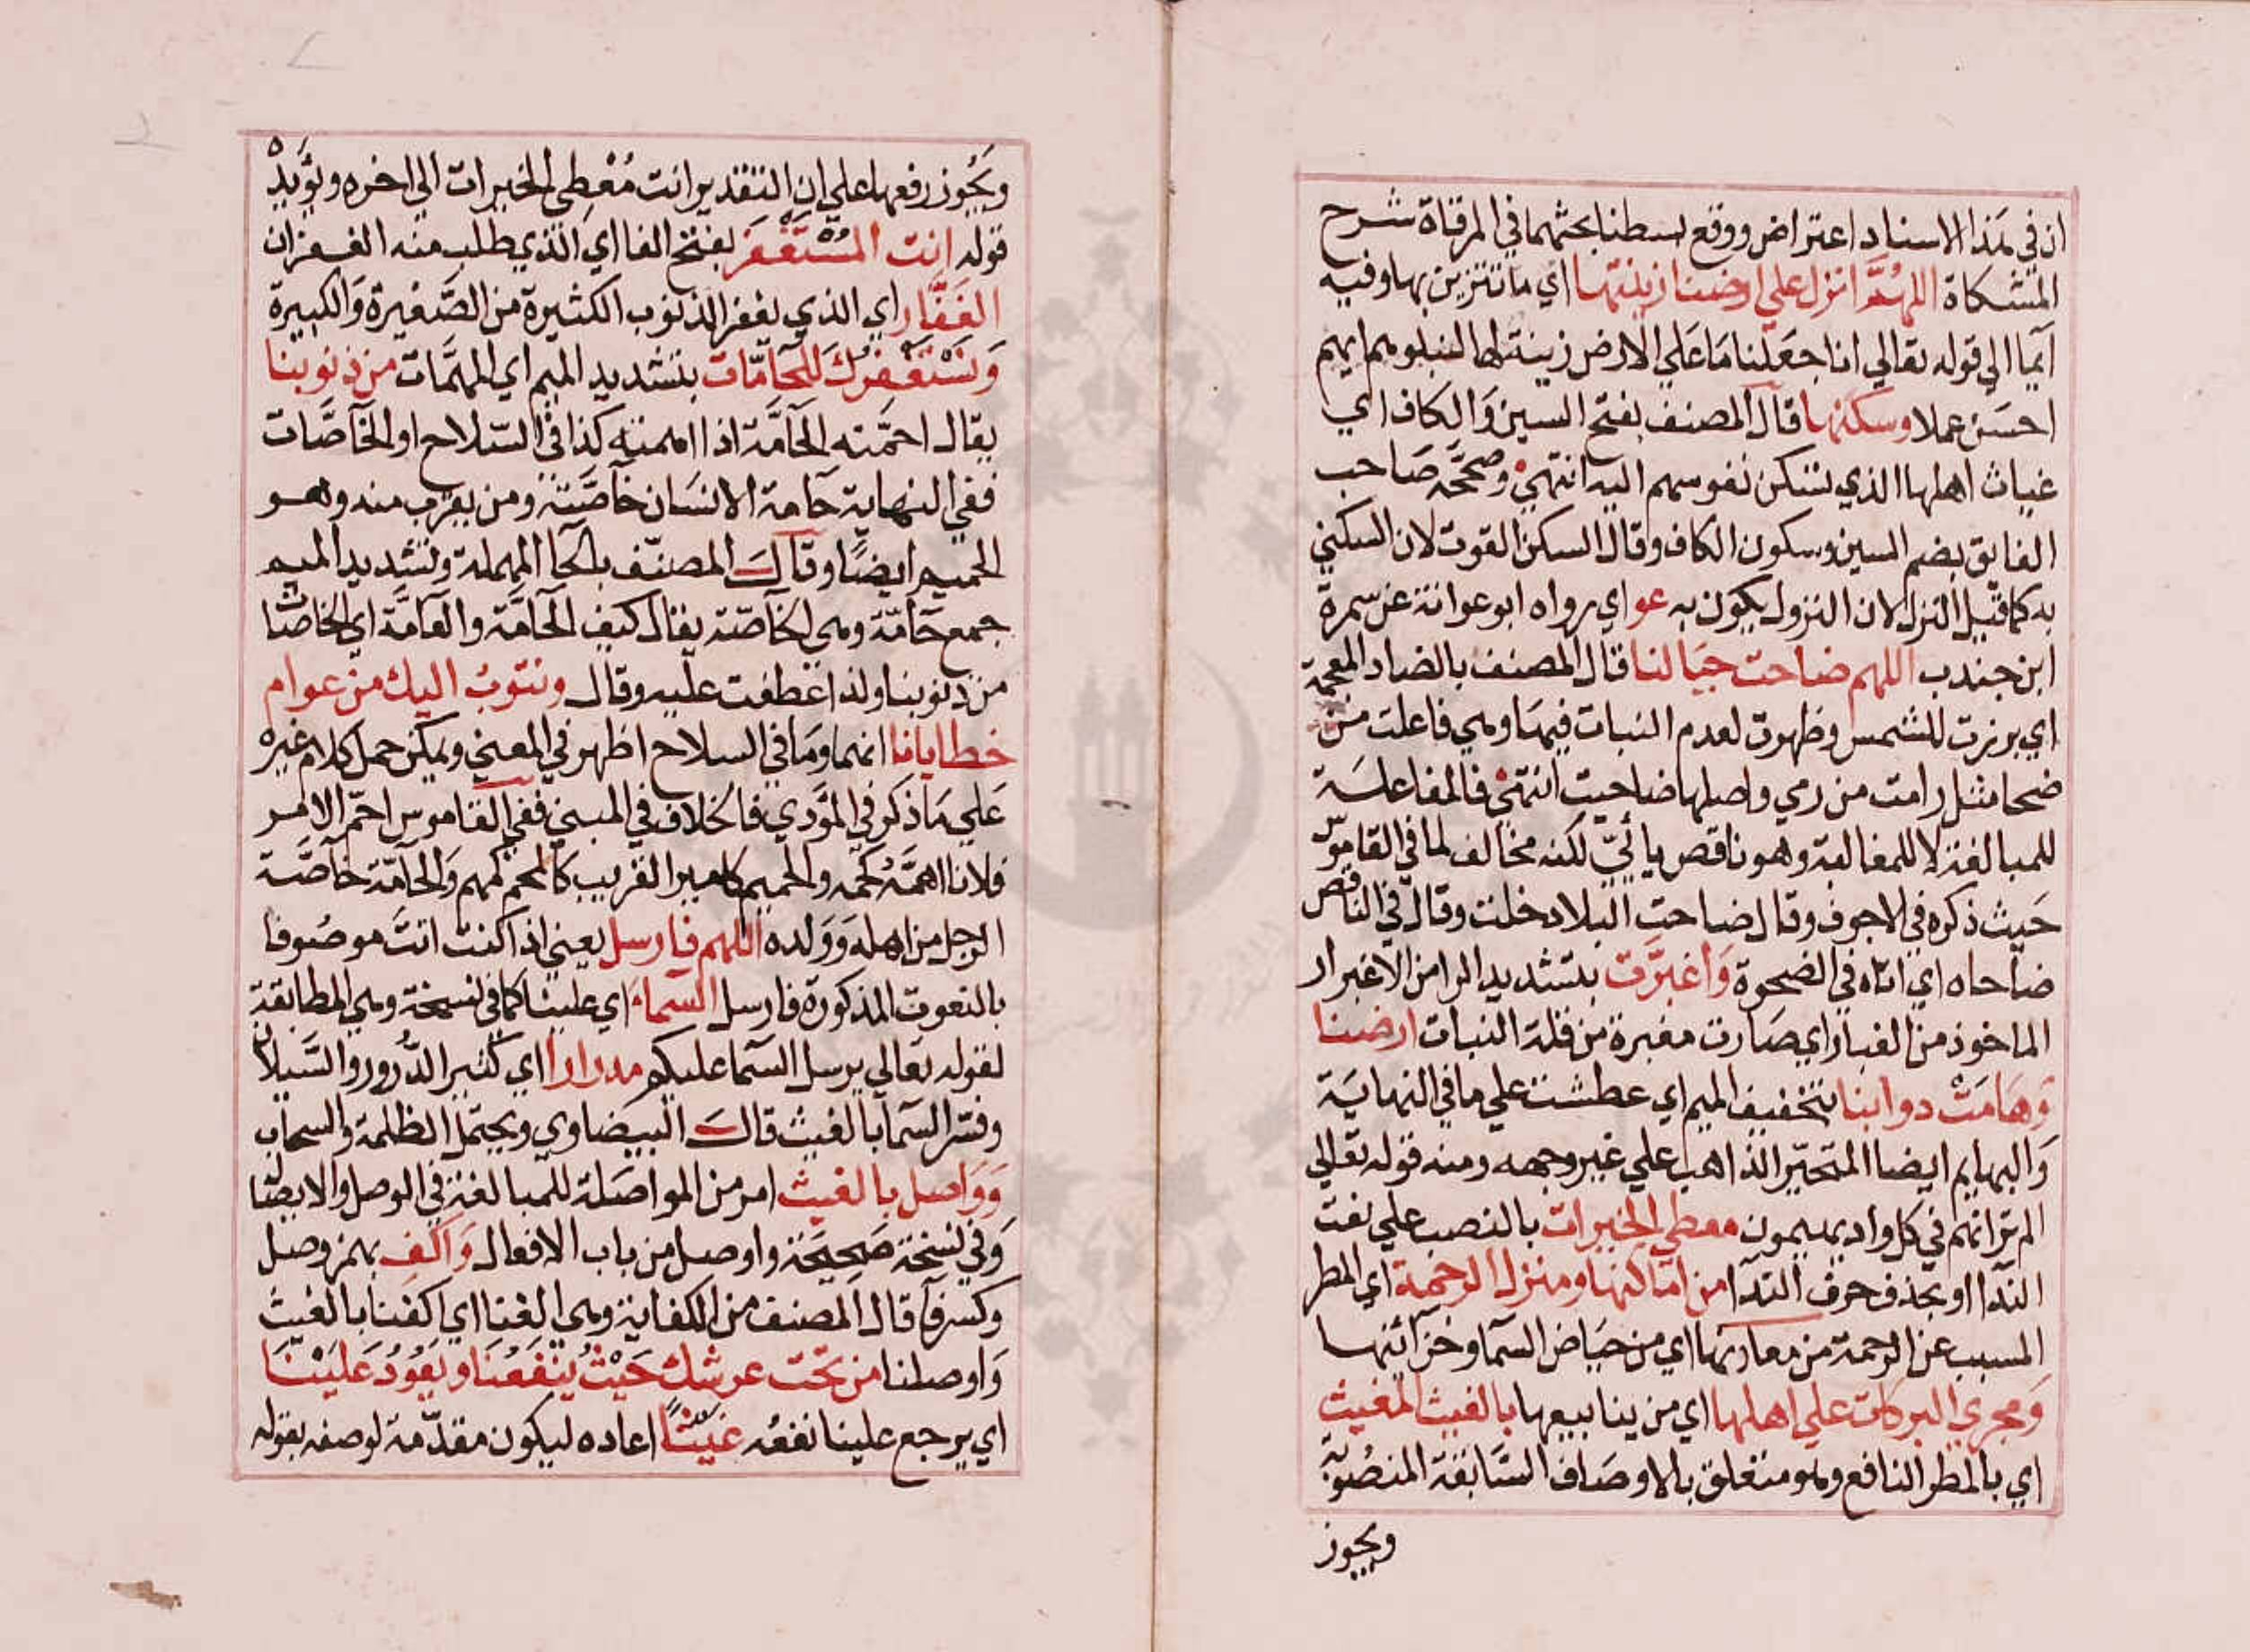 ان في هذا الاسناد اعتراض ووقع بسطنا بحثهما في المرقاة شرح
المشكاة اللهم انزل علي ارضنا زينتها اي ما تتزين بها وفيه
ايما الي قوله تعالي انا جعلنا ما علي الارض زينة لها لنبلوهم ايهم
احسن عملا وسكنها قال المصنف بفتح السين والكاف اي
غياث اهلها الذي تسكن نفوسهم اليه انتهي وصححه صاحب
الفايق بضم السين وسكون الكاف وقال السكن القوت لان السكني
به كما قيل النزل لان النزول يكون به عو اي رواه ابو عوانة عن سمرة
ابن جندب اللهم ضاحت جبالنا قال المصنف بالضاد المعجمة
اي برزت للشمس وظهرت لعدم النبات فيها وهي فاعلت من
ضحا مثل رامت من رمي واصلها ضاحيت انتهي فالمفاعلة
للمبالغة لا للمغالبة وهو ناقص يائي لكنه مخالف لما في القاموس
حيث ذكره في الاجوف وقال ضاحت البلاد خلت وقال في الناقص
ضاحاه اي اتاه في الضحوة واغبرت بتشديد الرا من الاغبرار
الماخوذ من الغبار اي صارت مغبرة من قلة النبات ارضنا
وهامت دوابنا بتخفيف الميم اي عطشت علي ما في النهاية
والبهايم ايضا المتحير الذاهب علي غير وجهه ومنه قوله تعالي
الم تر انهم في كل واد يهيمون معطي الخيرات بالنصب علي نعت
الندا او بحذف حرف الندا من اماكنها ومنزل الرحمة اي المطر
المسبب عن الرحمة من معادنها اي من حياض السما وخزائنها
ومجري البركات علي اهلها اي من ينابيعها بالغيث المغيث
اي بالمطر النافع وهو متعلق بالاوصاف السابقة المنصوبة
ويجوز
ويجوز رفعها علي ان التقدير انت معطي الخيرات الي اخره ويؤيده
قوله انت المستغفر بفتح الفا اي الذي يطلب منه الغفران
الغفار اي الذي يغفر الذنوب الكثيرة من الصغيرة والكبيرة
ونستغفرك للحامات بتشديد الميم اي المهمات من ذنوبنا
يقال احمته الحامة اذا اهمته كذا في السلاح او الخاصات
ففي النهاية حامة الانسان خاصته ومن يقرب منه وهو
الحميم ايضا وقال المصنف بالحا المهملة وتشديد الميم
جمع حامة وهي الخاصة يقال كيف الحامة والعامة اي الخاصات
من ذنوبنا ولذا عطفت عليه وقال ونتوب اليك من عوام
خطايانا انهما وما في السلاح اظهر في المعني ويمكن حمل كلام غيره
علي ما ذكر في المؤدي فالخلاف في المبني ففي القاموس احم الامر
فلانا اهمه كحمه والحميم كامير القريب كالمحم كمهم والحامة خاصة
الرجل من اهله وولده اللهم فارسل يعني اذا كنت انت موصوفا
بالنعوت المذكورة فارسل السماء اي علينا كما في نسخة وهي المطابقة
لقوله تعالي يرسل السما عليكم مدرارا اي كثير الدرور والسيلان
وفسر السما بالغيث قال البيضاوي ويحتمل الظلمة والسحاب
وواصل بالغيث امر من المواصلة للمبالغة في الوصل والايصال
وفي نسخة صحيحة واوصل من باب الافعال واكف بهمز وصل
وكسر فا قال المصنف من الكفاية وهي الغنا اي اكفنا بالغيث
واوصلنا من تحت عرشك حيث ينفعنا ويعود علينا
اي يرجع علينا نفعه غيثا اعاده ليكون مقدمة لوصفه بقوله